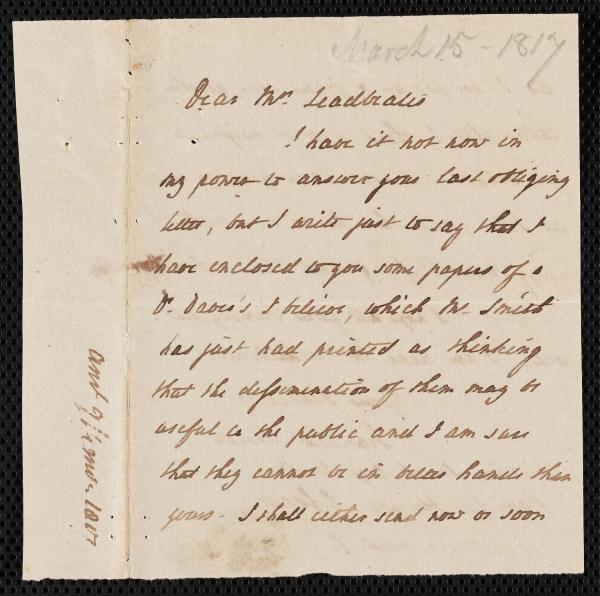 March 15 - 1817
Dear Mrs. Leadbeater
I have it not now in
my power to answer your last obliging
letter, but I write just to say that I
have enclosed to you some papers of a
Dr. Davis's I believe, which Mr. Smith
has just had printed as thinking
that the dissemination of them may be
useful to the public and I am sure
that they cannot be in better hands than
yours - I shall either send now or soon